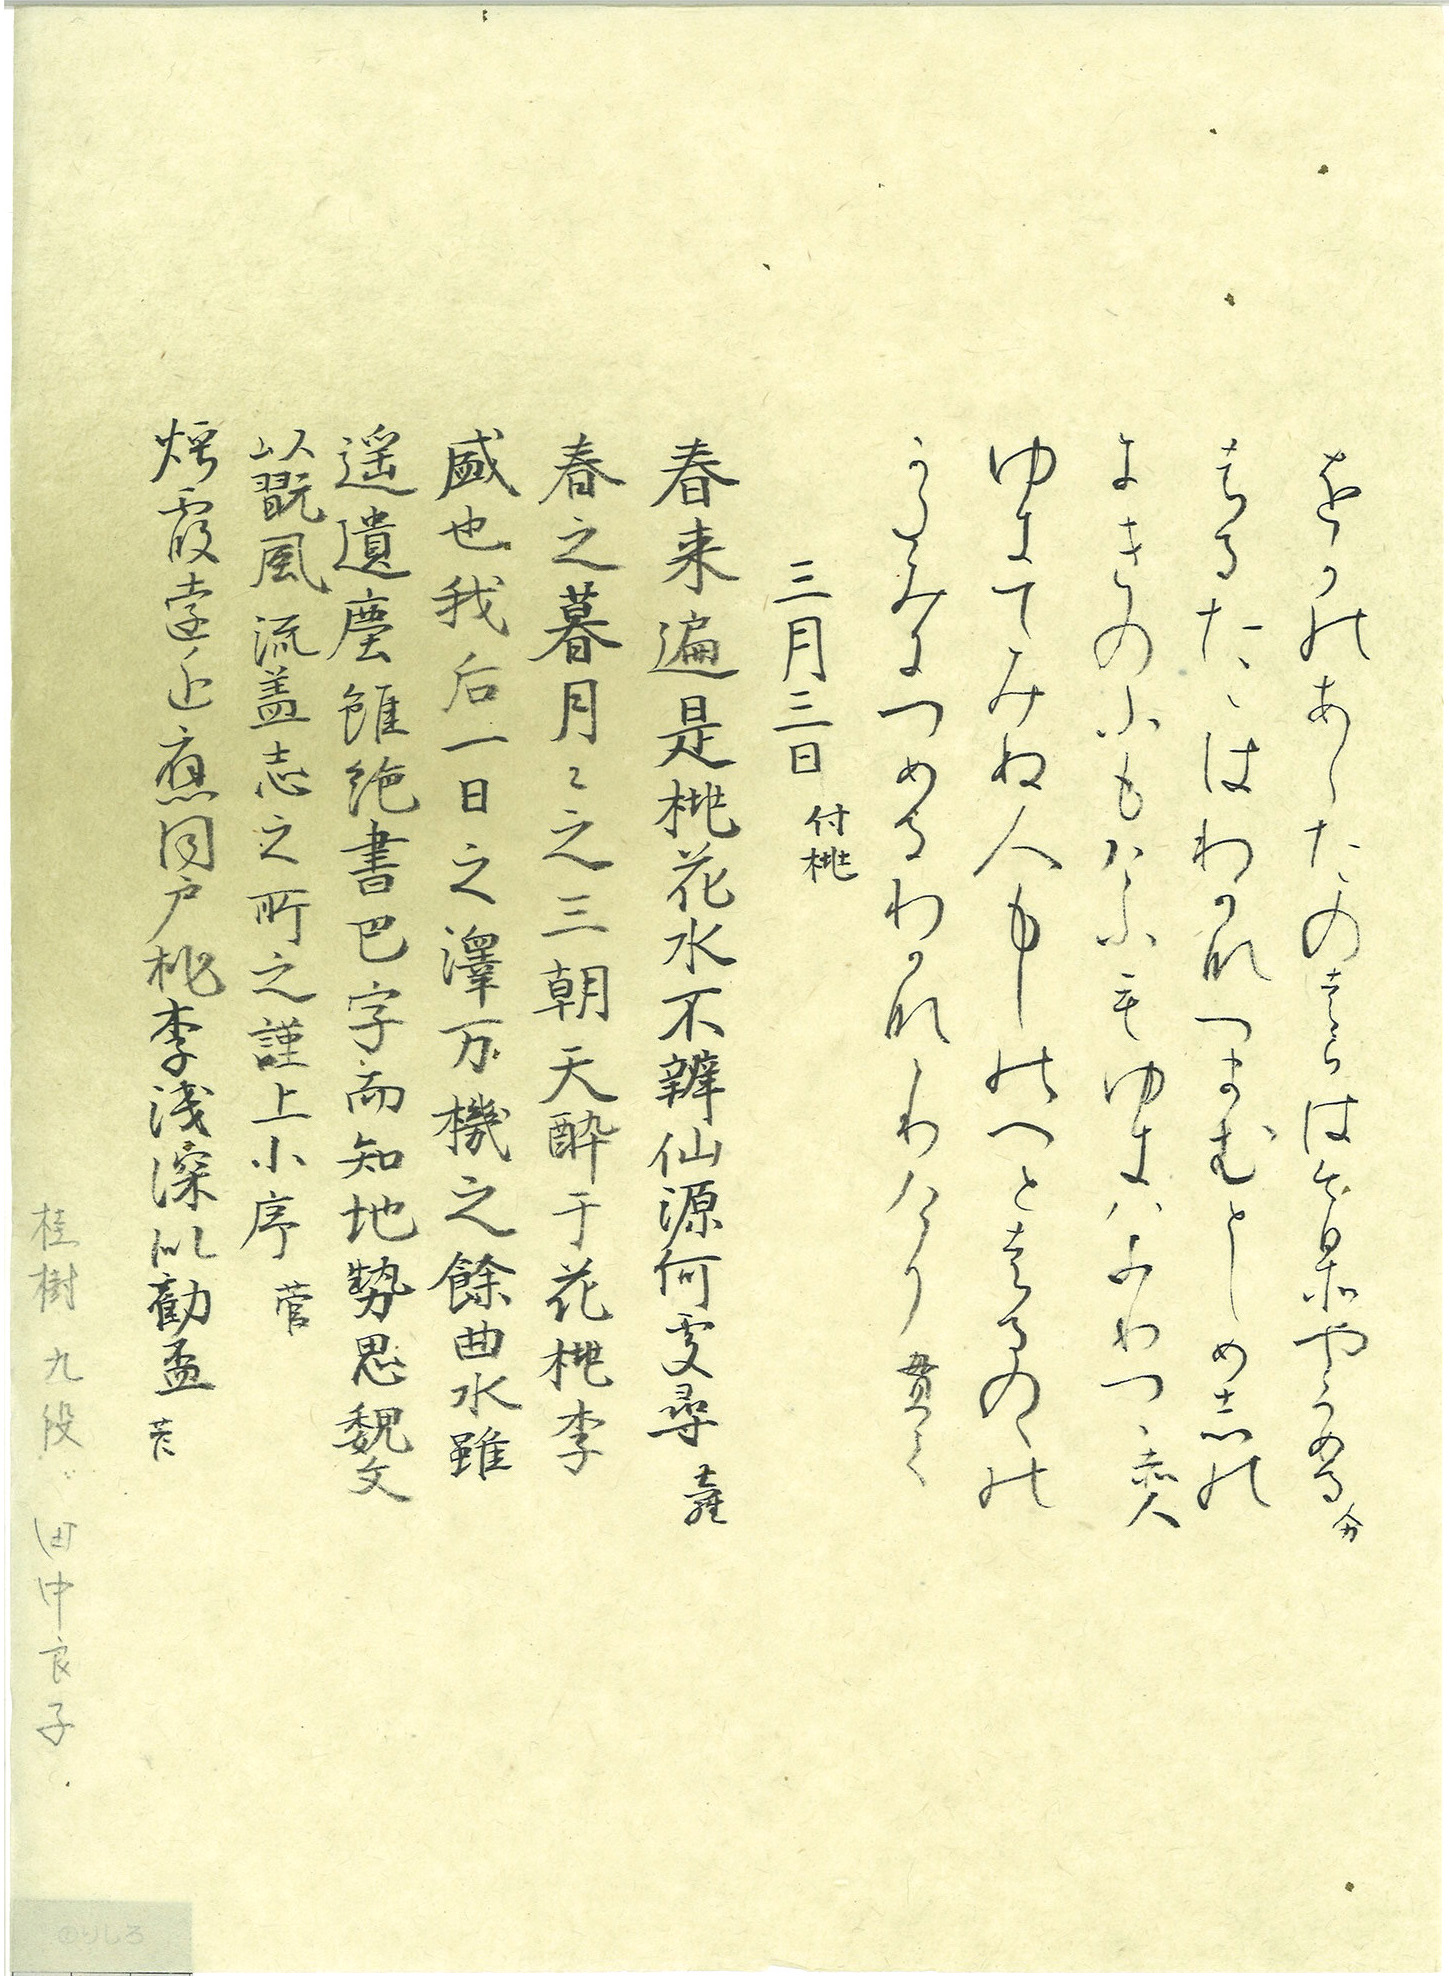 をかのあしたのはらはけふそやくめる
はるたゝはわかなつまむとしめしの
にきのふもけふもゆきはふりつゝ 赤人
ゆきてみぬ人もしのへとはるのゝの
かたみにつめるわかなゝりけり 貫之
三月三日 付桃
春来遍是桃花水不辨仙源何處尋
春之暮月々之三朝天酔于花桃李
盛也我后一日之澤万機之餘曲水雖
遥遺塵雖絶書巴字而知地勢思魏文
以翫風流盖志之所之謹上小序 菅
煙霞遠近應同戸桃李浅深似勧盃 菅
桂樹 九段 田中良子
のりしろ